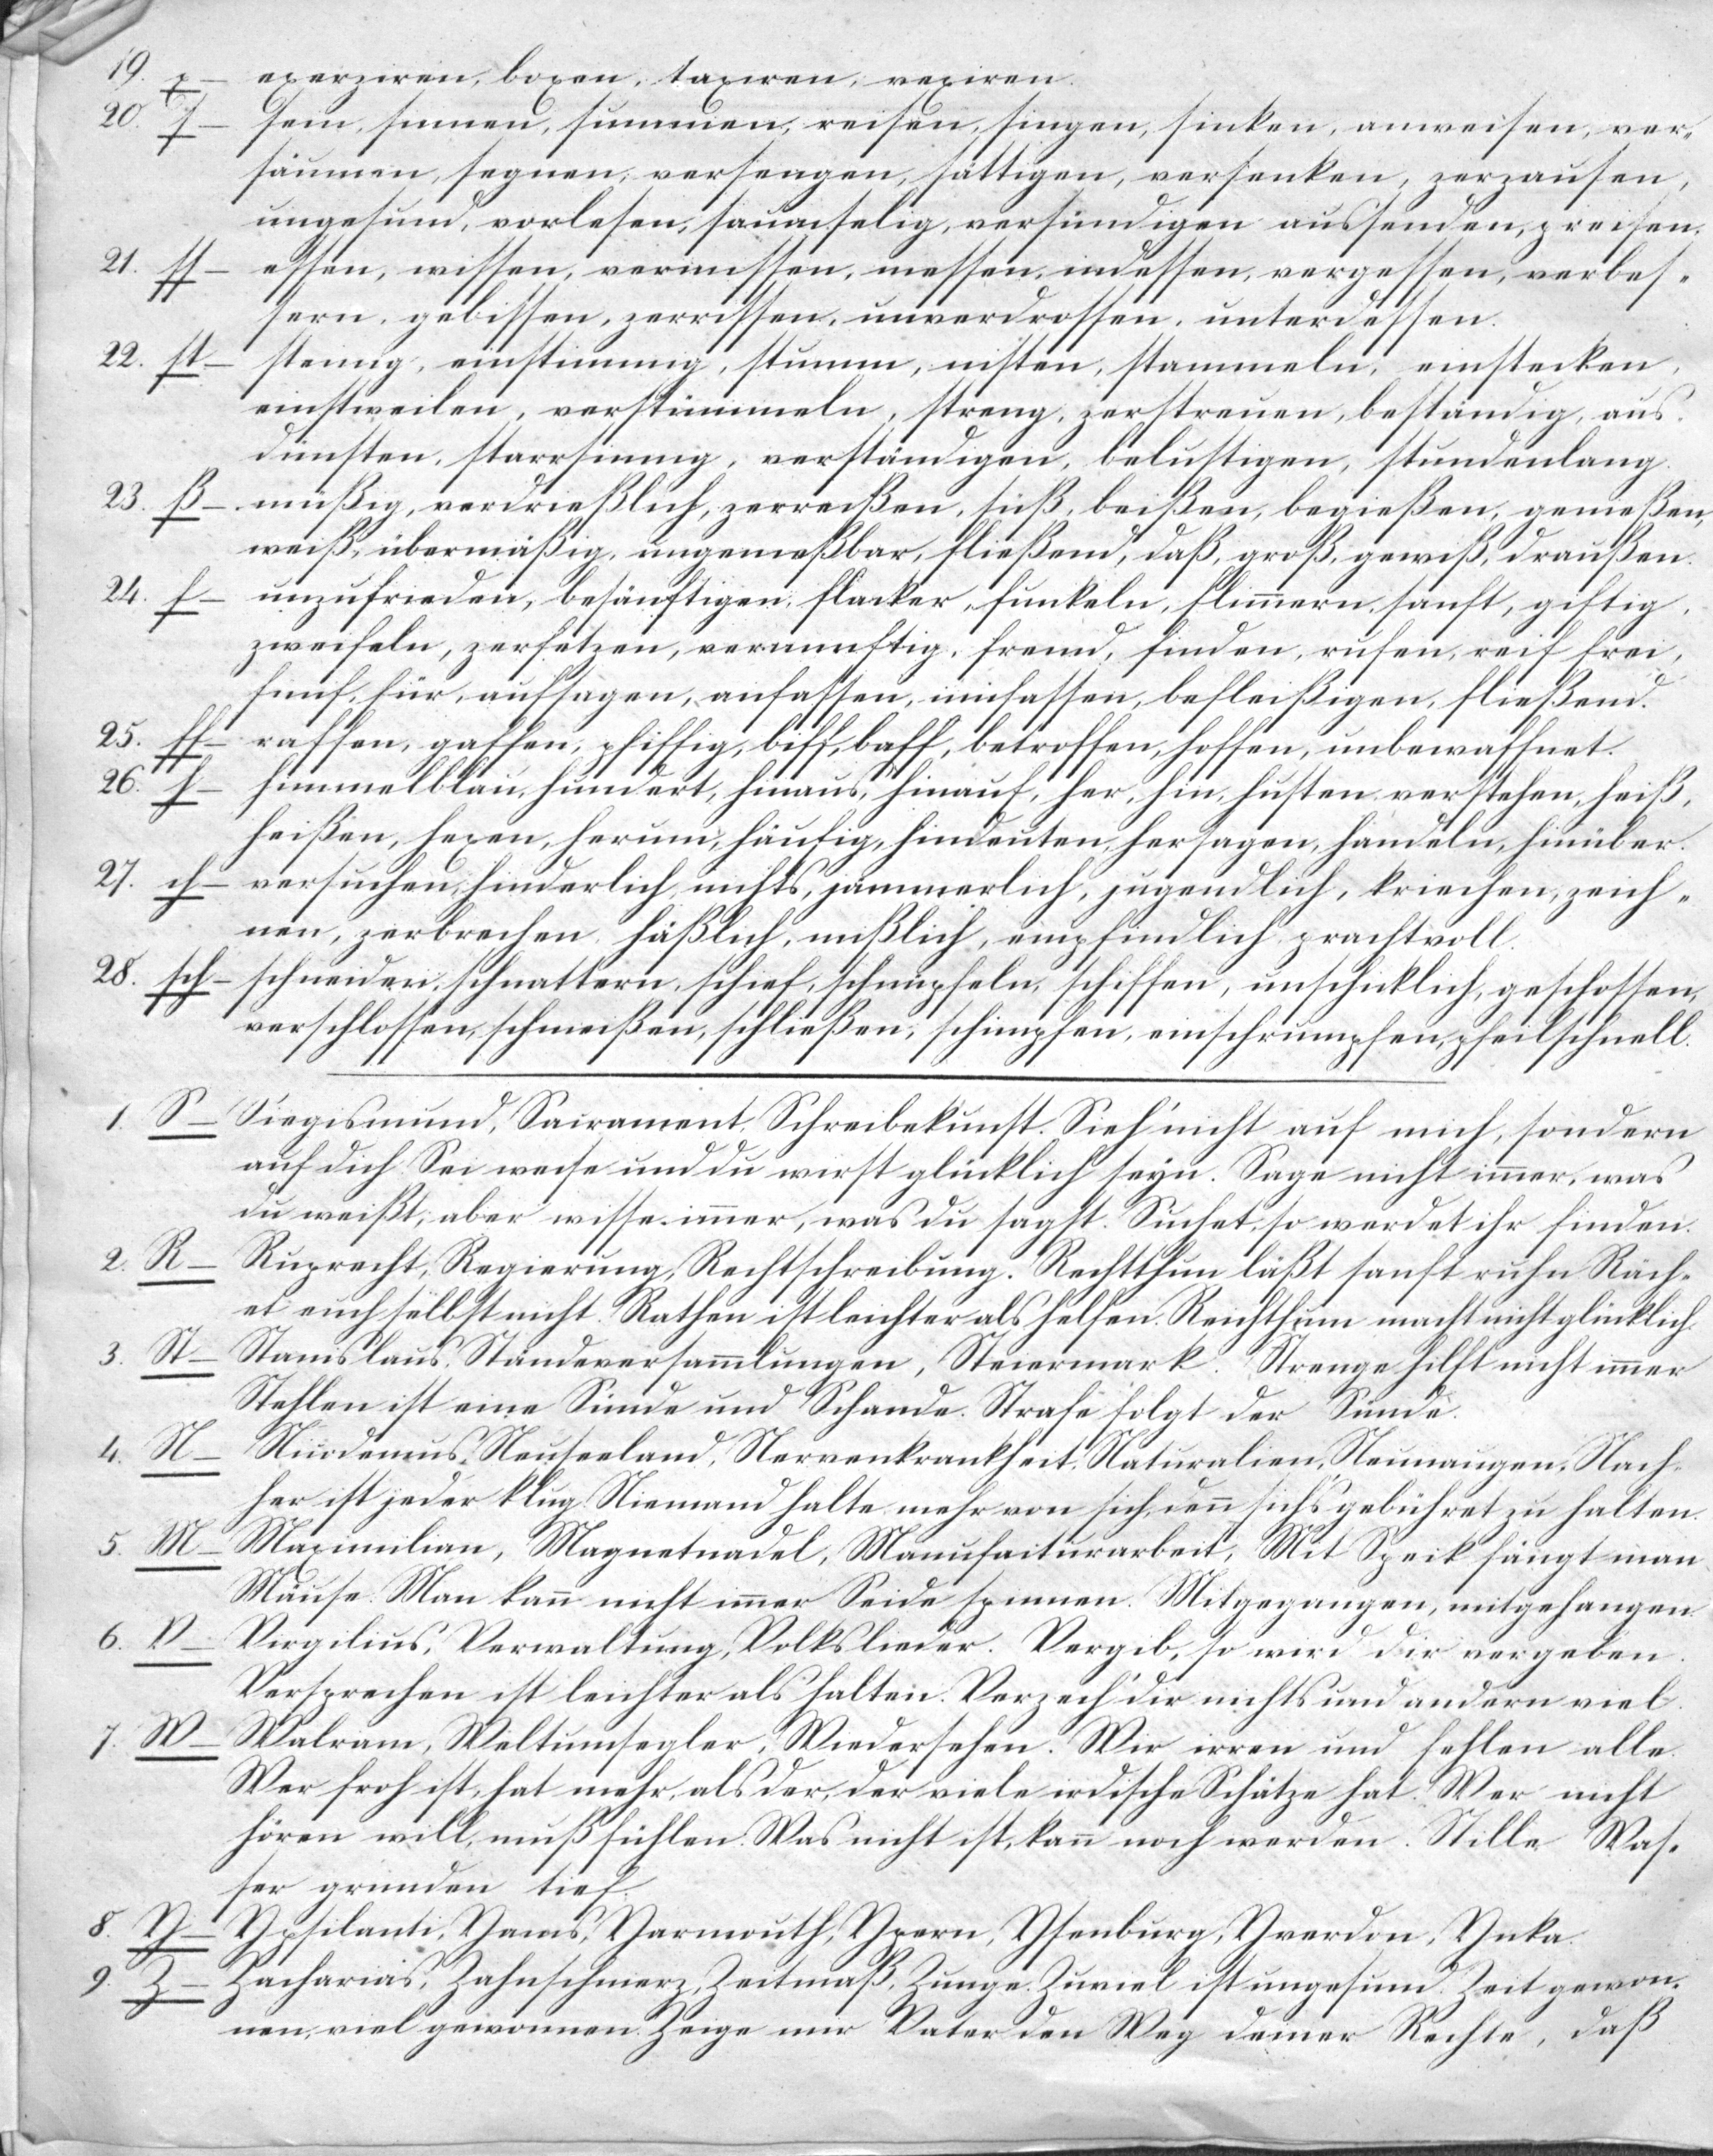 19. x — exerziren, boxen, taxiren, vexiren.
20. ſ — sein, sinnen, summen, reisen, singen, sinken, anweisen, ver-
säumen, segnen, versengen, sättigen, versenken, zerzausen,
ungesund, vorlesen, saumselig, versündigen aussenden, preisen.
21. ſſ — essen, wissen, vermissen, messen, indessen, vergessen, verbes-
sern, gebissen, zerrissen, unverdrossen, unterdessen.
22. st — steinig, einstimmig, stumm, nisten, stammeln, einstecken,
einstweilen, verstümmeln, streng, zerstreuen, beständig, aus-
dünsten, starrsinnig, verständigen, belustigen, stundenlang.
23. ß — müßig, verdrießlich, zerreißen, süß, beißen, begießen, genießen,
weiß, übermäßig, ungenießbar, fließend, daß, groß, gewiß, draußen.
24. f — unzufrieden, besänftigen, flacker, funkeln, flim̄ern, sanft, giftig,
zweifeln, zerfetzen, vernunftig, fremd, finden, rufen, reif frei,
fünf, für, aufsagen, anfassen, umfassen, befleißigen, fließend.
25. ff — raffen, gaffen, pfiffig, biff, baff, betroffen, hoffen, unbewaffnet.
26. h — himmelblau, hundert, hinaus, hinauf, her, hin, husten verstehen, heiß,
heißen, hexen, herum, häufig, hindeuten, hersagen, handeln, hinüber.
27. ch — versuchen, hinderlich, nichts, jammerlich, jugendlich, kriechen, zeich-
nen, zerbrechen, häßlich, mißlich, empfindlich prachtvoll.
28. sch — schneiden, schnattern, schief, schnüpfeln, schiffen, unschicklich, geschossen,
verschlossen, schmeißen, schließen, schimpfen, einschrumpfen, pfeilschnell.
1. S — Siegismund, Sacrament, Schreibekunst. Sieh' nicht auf mich, sondern
auf dich Sei weise und du wirst glücklich seyn. Sage nicht im̄er, was
du weißt, aber wisse im̄er, was du sagst. Suchet, so werdet ihr finden.
2. R — Ruprecht, Regierung, Rechtschreibung. Rechtthun läßt sanft ruhn Räch-
et euch selbst nicht. Rathen ist leichter als helfen. Reichthum macht nicht glücklich.
3. St — Stanislaus, Ständeversam̄lungen, Steiermark. Strenge hilft nicht im̄er
Stehlen ist eine Sünde und Schande. Strafe folgt der Sünde.
4. N — Nicodemus, Neuseeland, Nervenkrankheit, Naturalien, Neunaugen, Nach-
her ist jeder klug Niemand halte mehr von sich, den̄ sichs gebühret zu halten.
5. M — Maximilian, Magnetnadel, Manufacturarbeit, Mit Speck fängt man
Mäuse. Man kan̄ nicht im̄er Seide spinnen. Mitgegangen, mitgehangen.
6. V — Virgilius, Verwaltung, Volkslieder. Vergib, so wird dir vergeben.
Versprechen ist leichter als halten. Verzeih' dir nichts und andern viel.
7. W — Walram, Weltumsegler, Wiedersehen. Wir irren und fehlen alle.
Wer froh ist, hat mehr, als der, der viele irdische Schätze hat. Wer nicht
hören will, muß fühlen. Was nicht ist, kan̄ noch werden. Stille Was-
ser gründen tief.
8. Y — Ypsilanti, Yams, Yarmouth, Ypern, Ysenburg, Yverdon, Ynka.
9. Z — Zacharias, Zahnschmerz, Zeitmaß, Zunge. Zuviel ist ungesund. Zeit gewon-
nen, viel gewonnen. Zeige mir Vater den Weg deiner Rechte, daß